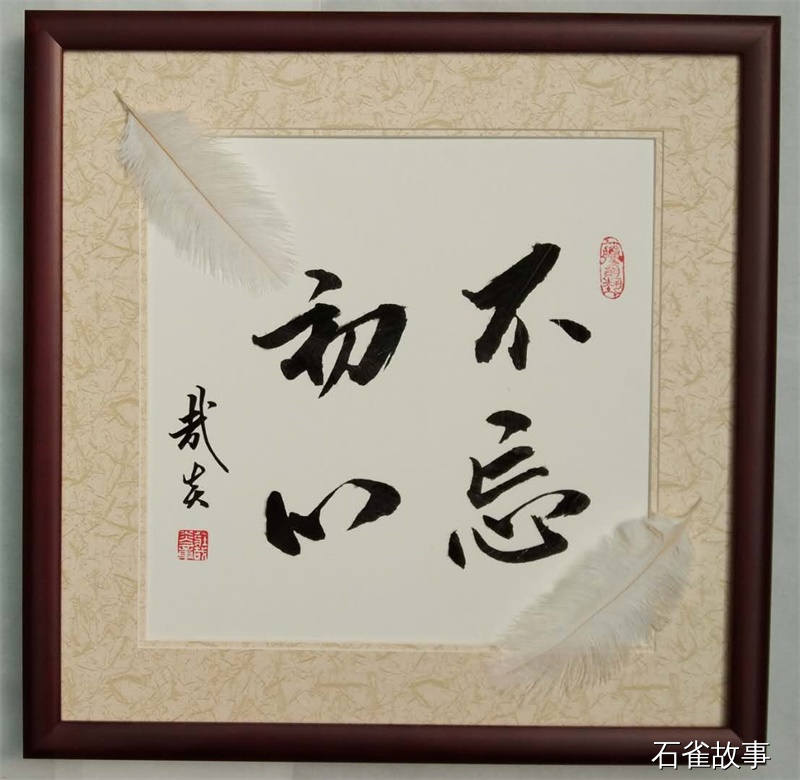 不忘
初心
哉炎
石雀故事